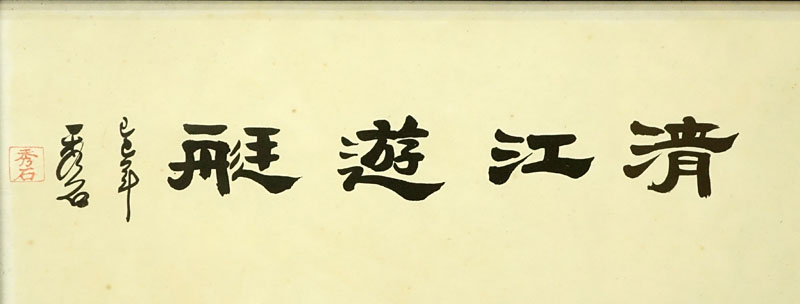 清江遊艇
巳年
秀石
秀石